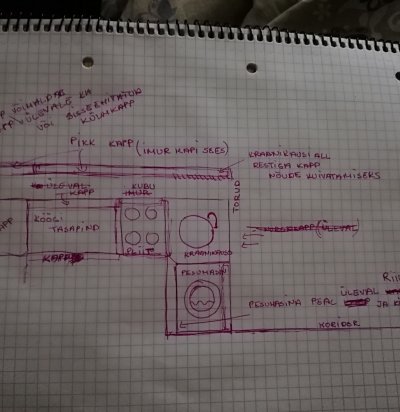 VÕIMALDAB
ÜLEVALE KA
VÕI SISSEEHITATUD
KÜLMKAPP
PIKK KAPP (IMUR KAPI SEES)
KRAANIKAUSI ALL
RESTIGA KAPP
NÕUDE KUIVATAMISEKS
ÜLEVAL
KAPP
KUBU
IMUR
TORUD
KÖÖGI
TASAPIND
PLIIT
KRAANIKAUSS
(ÜLEVAL)
KAPP
PESUMASIN
PESUMASINA PEAL
ÜLEVAL
JA
KORIDOR